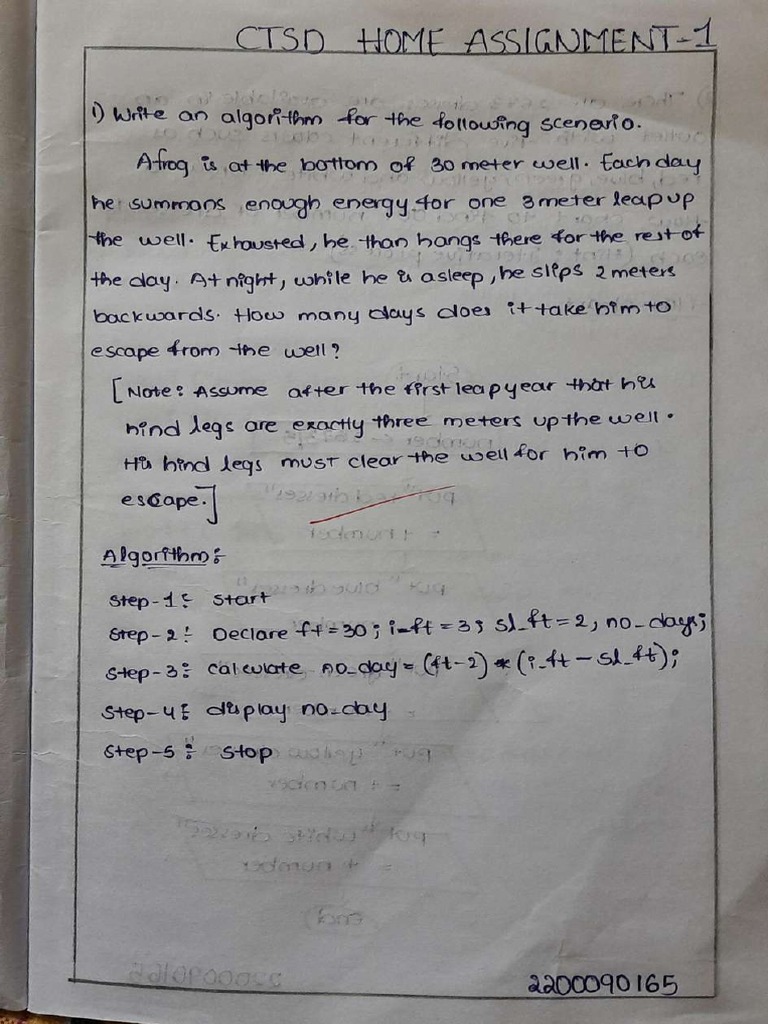 CTSD HOME ASSIGNMENT-1
1) Write an algorithm for the following scenerio.
A frog is at the bottom of 30 meter well. Each day
he summons enough energy for one 3 meter leap up
the well. Exhausted, he than hangs there for the rest of
the day. At night, while he is asleep, he slips 2 meters
backwards. How many days does it take him to
escape from the well?
[Note: Assume after the first leap year that his
hind legs are exactly three meters up the well.
His hind legs must clear the well for him to
escape.]
Algorithm:
Step-1: Start
Step-2: Declare ft=30; i_ft=3; sl_ft=2, no_days;
Step-3: Calculate no_day=(ft-2)*(i_ft-sl_ft);
Step-4: display no_day
Step-5: Stop
2200090165